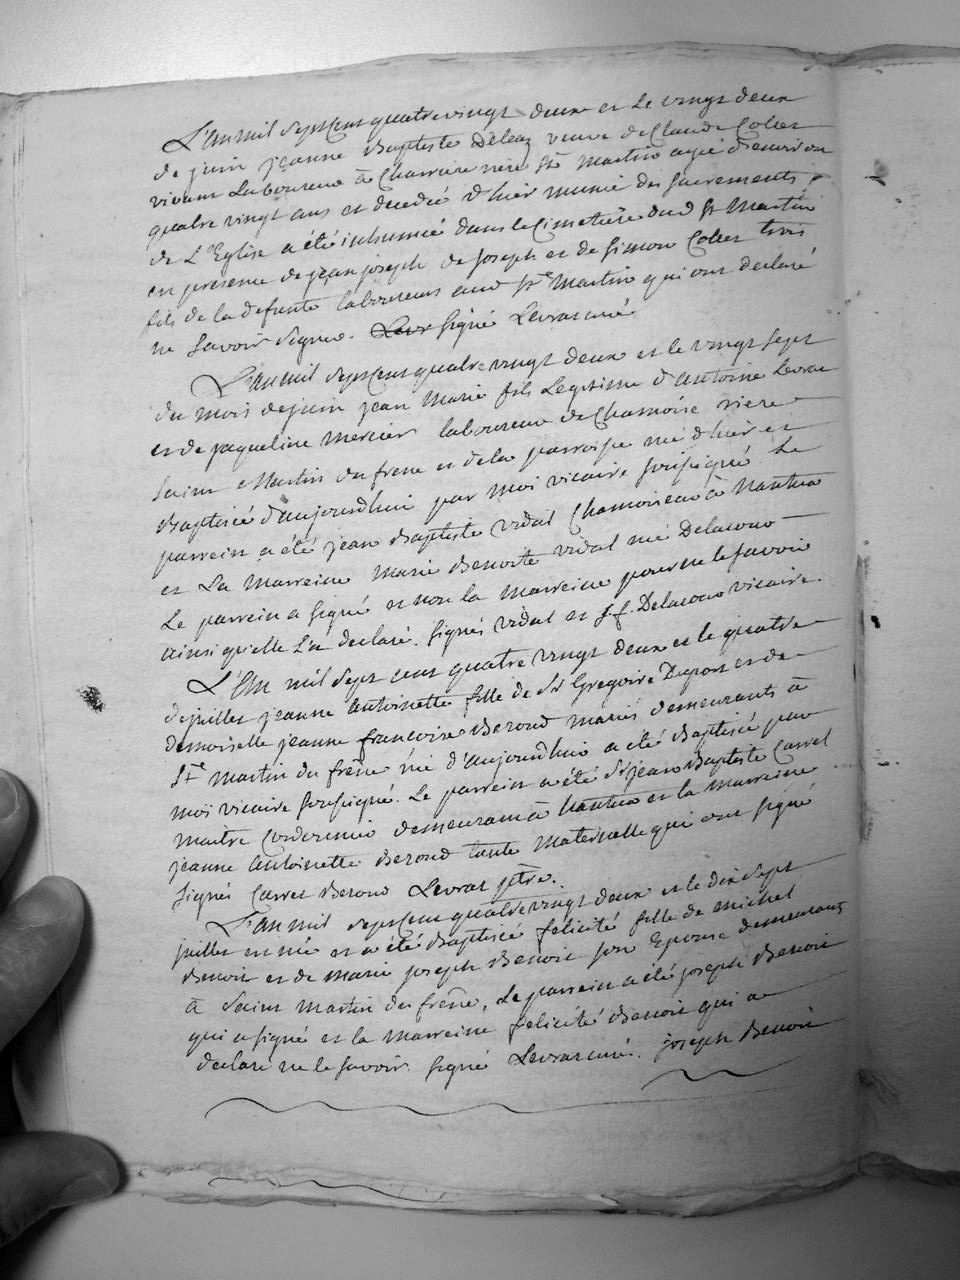 L'an mil sept Cent quatre vingt deux et le vingt deux
de juin jeanne Baptiste Deléaz veuve de Claude Collet
vivant Laboureur à Charvine rière St Martin agée d'environ
quatre vingt ans et decedée d'hier munie des sacrements
de L'Eglise a été inhumée dans le Cimetière dud St Martin
en presence de jean joseph de joseph et de Simon Collet trois
fils de la defunte laboureurs aud St Martin qui ont declaré
ne savoir signer. Levr signé Levrat curé
L'an mil sept Cent quatre vingt deux et le vingt sept
du mois de juin jean Marie fils Legitime d'Antoine Levrat
et de jaqueline mercier laboureur de Chamoise riere
saint Martin du frene et de la parroisse né d'hier et
Baptisé d'aujourdhui par moi vicaire soussigné. Le
parrein a été jean Baptiste vidal Chamoiseur à Nantua
et La Marreine Marie Benoite vidal né Delacour
Le parrein a signé et non la Marreine pour ne le savoir
ainsi qu'elle L'a declaré. signés vidal et j. f. Delacour vicaire.
L'An mil sept cent quatre vingt deux et le quatre
de juillet jeanne Antoinette fille de Sr Gregoire Dupont et de
demoiselle jeanne francoise Beroud mariés demeurants à
St Martin du frêne né d'aujourdhui a été Baptisé par
moi vicaire soussigné. Le parrein a été Sr jean Baptiste Carrel
maitre Cordonnier demeurant à Nantua et la marreine
jeanne Antoinette Beroud tante Maternelle qui ont signé
signés Carrel Beroud Levrat ptre.
L'an mil sept Cent quatre vingt deux et le dix sept
juillet est née et a été Baptisée felicité fille de michel
Benoit et de marie joseph Benoit son Epouse demeurants
à saint Martin du frêne, Le parrein a été joseph Benoit
qui a signé et la Marreine felicité Benoit qui a
declaré ne le savoir. signé Levrat curé. joseph Benoit